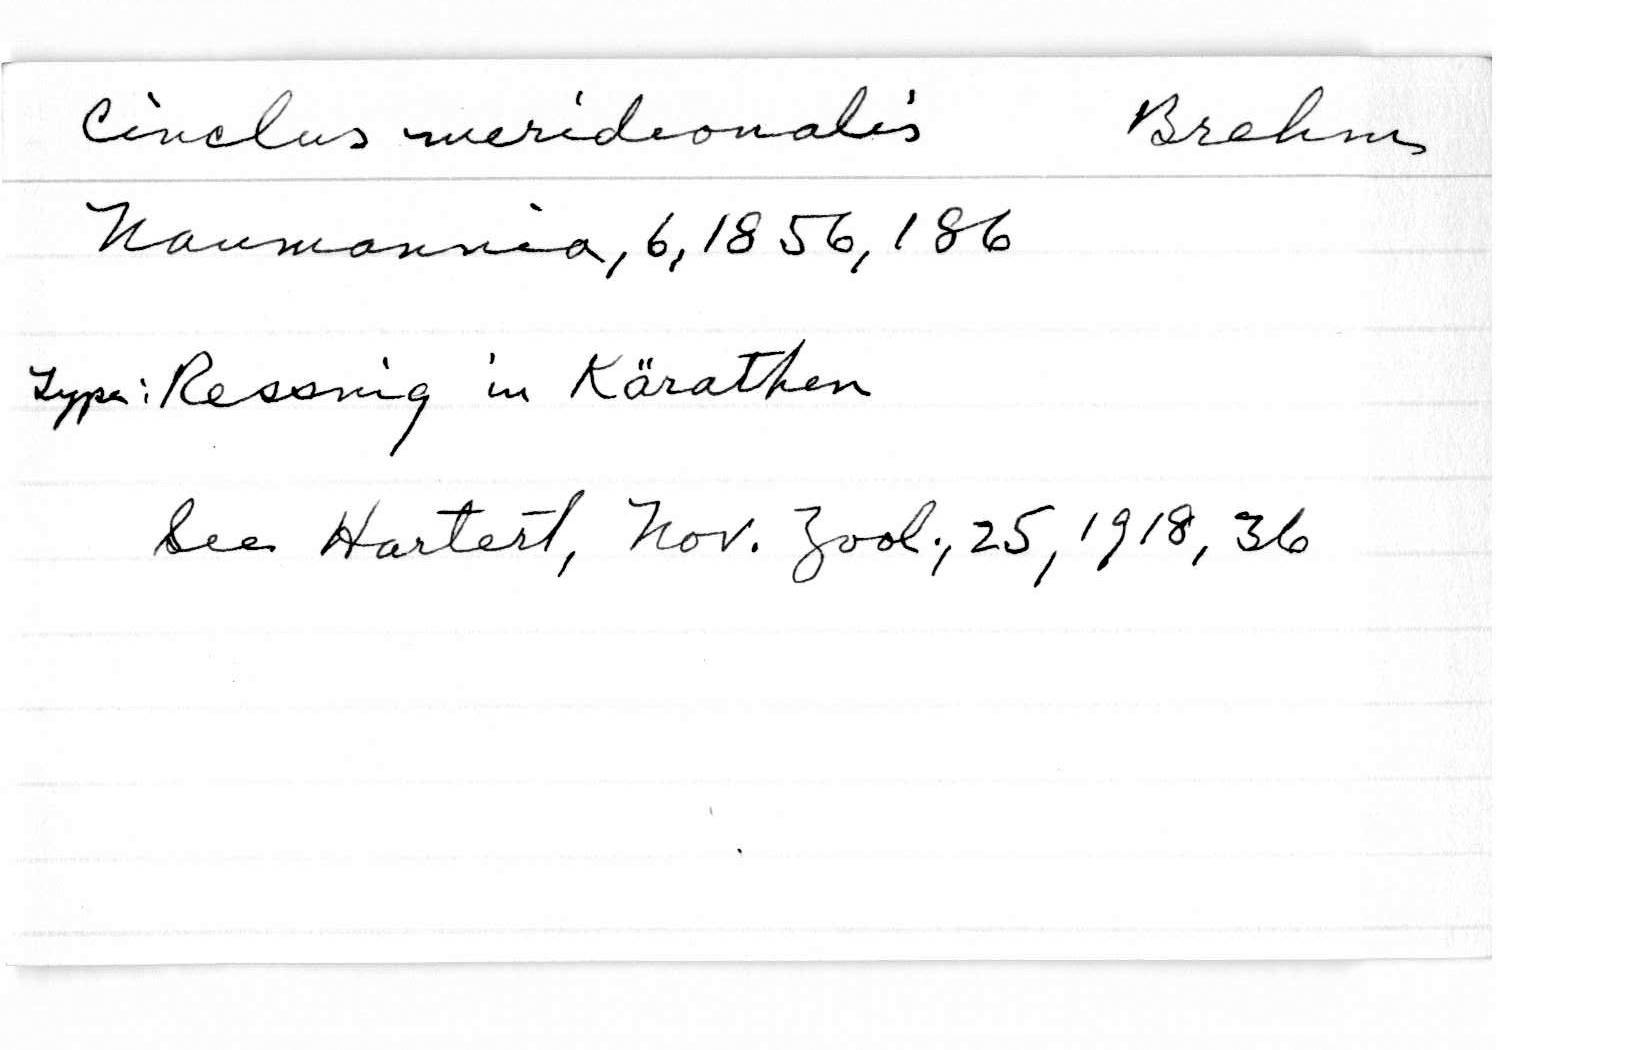 Cinclus meridionalis Brehm
Naumannia, 6, 1856, 186
Type: Ressnig in Kärathen
See Hartert, Nov. Zool., 25, 1918, 36